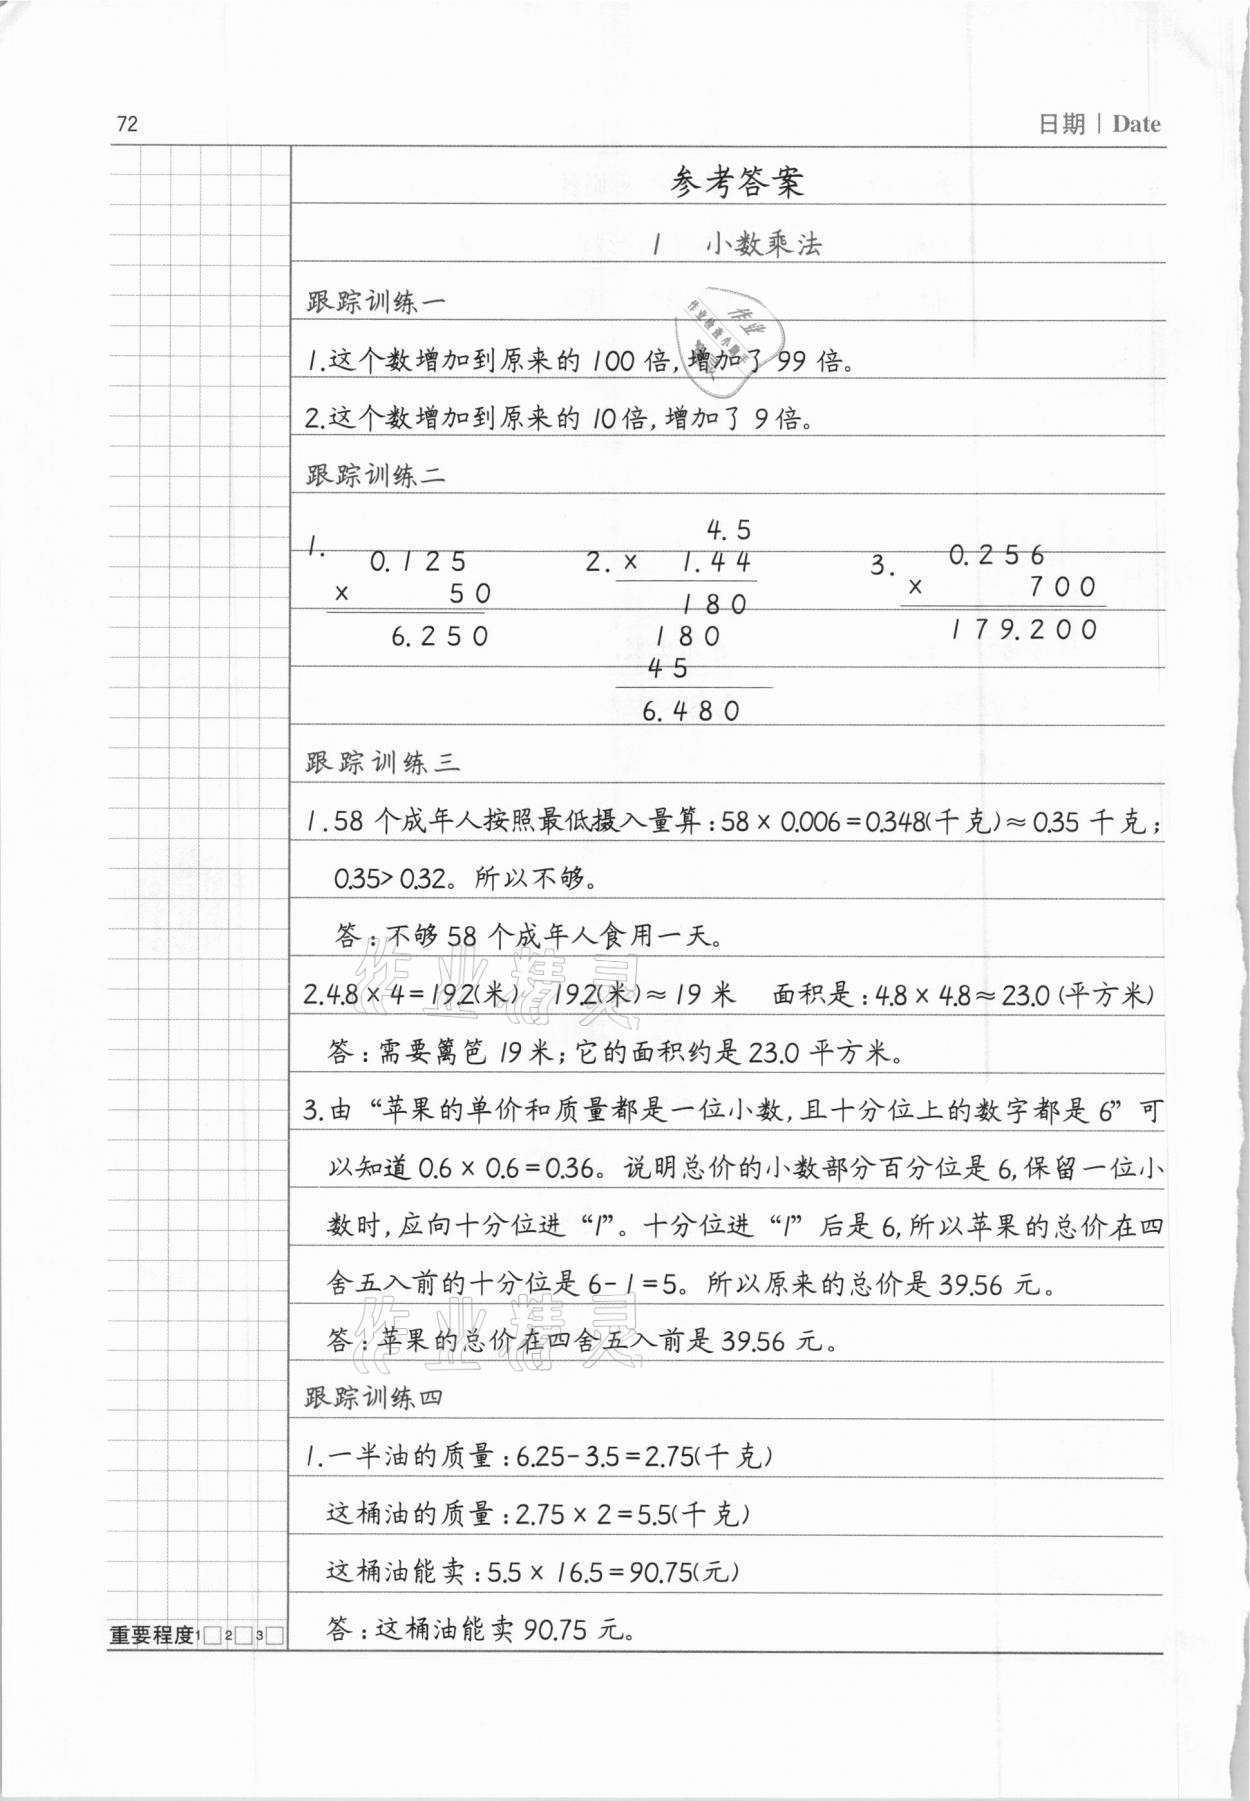 72
日期 | Date
参考答案
1 小数乘法
跟踪训练一
1.这个数增加到原来的 100 倍,增加了 99 倍。
2.这个数增加到原来的 10倍,增加了 9 倍。
跟踪训练二
1. 0.125
× 50
6.250
2. 4.5
× 1.44
180
180
45
6.480
3. 0.256
× 700
179.200
跟踪训练三
1.58 个成年人按照最低摄入量算:58 × 0.006=0.348(千克)≈0.35 千克;
0.35>0.32。所以不够。
答:不够 58 个成年人食用一天。
2.4.8 × 4=19.2(米) 19.2(米)≈19 米 面积是:4.8 × 4.8≈23.0 (平方米)
答:需要篱笆 19 米;它的面积约是 23.0 平方米。
3.由“苹果的单价和质量都是一位小数,且十分位上的数字都是 6”可
以知道 0.6 × 0.6=0.36。说明总价的小数部分百分位是 6,保留一位小
数时,应向十分位进“1”。十分位进“1”后是 6,所以苹果的总价在四
舍五入前的十分位是 6-1=5。所以原来的总价是 39.56 元。
答:苹果的总价在四舍五入前是 39.56 元。
跟踪训练四
1.一半油的质量:6.25-3.5=2.75(千克)
这桶油的质量:2.75 × 2=5.5(千克)
这桶油能卖:5.5 × 16.5=90.75(元)
答:这桶油能卖 90.75 元。
重要程度1□ 2□ 3□
作业精灵
作业精灵
作业
作业检查小助手